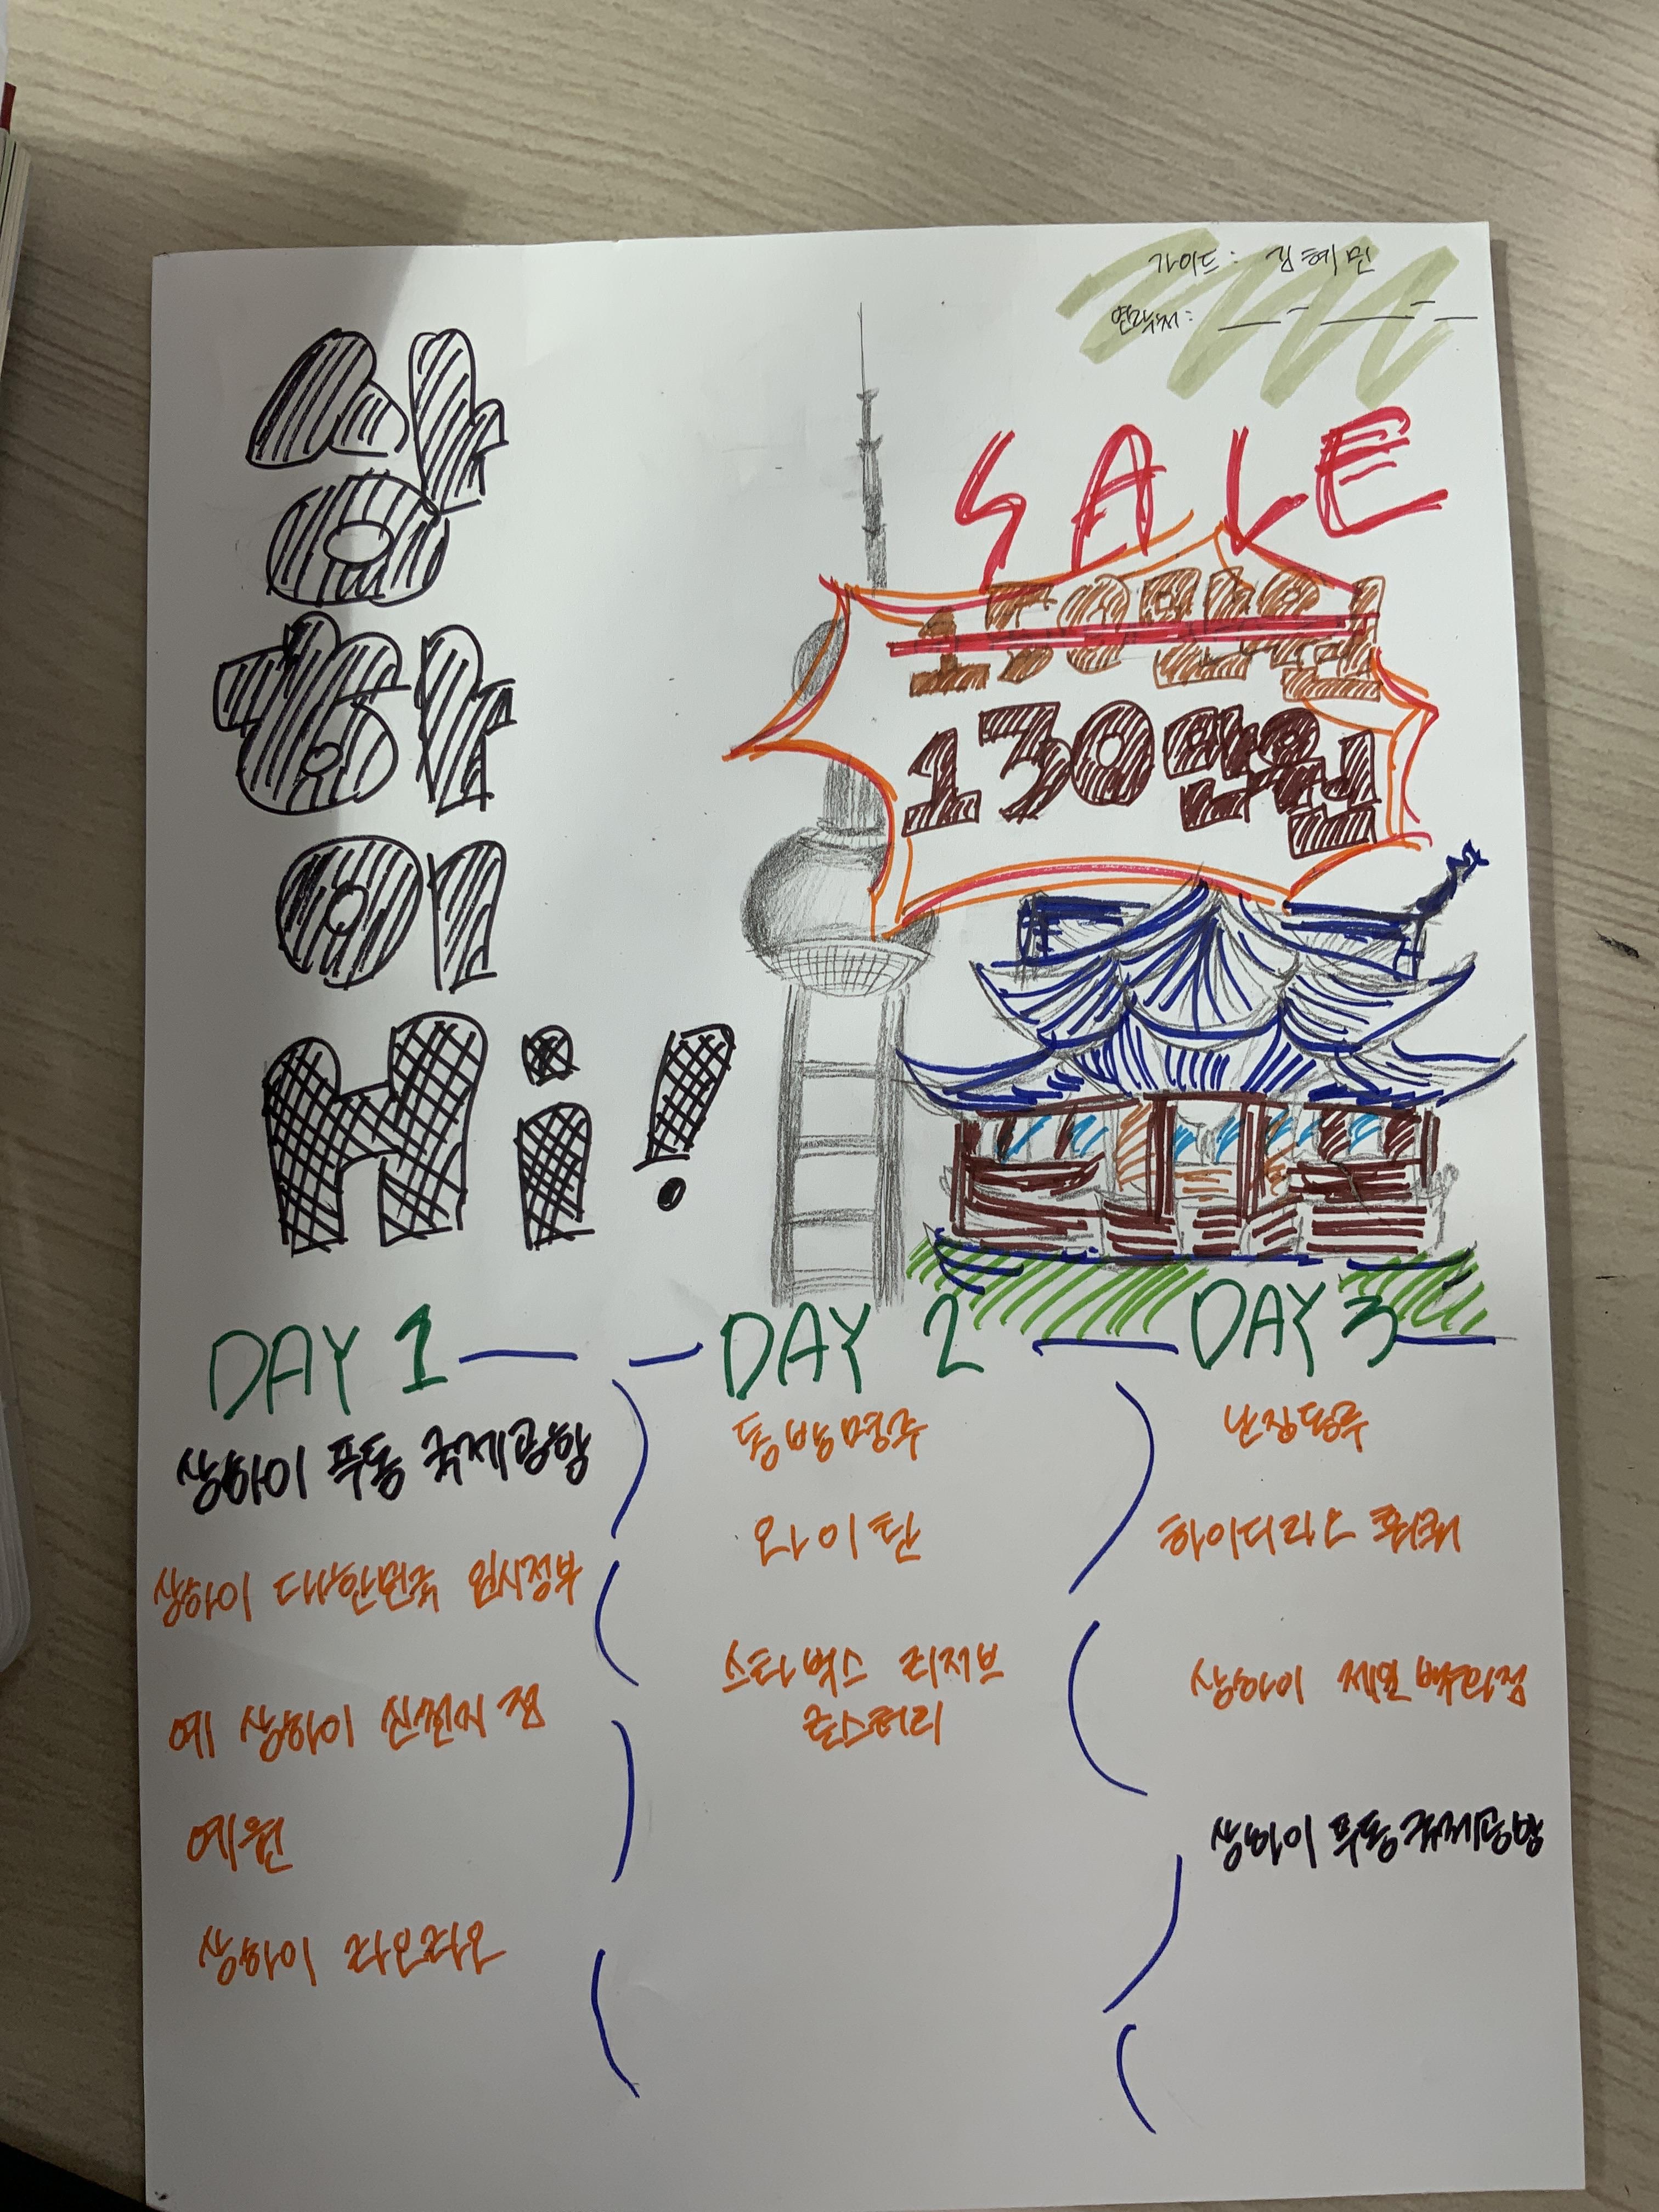 가이드: 김혜민
연락처:
상
하
이
Hi!
SALE
150만원
130만원
DAY 1
상하이 푸동 국제공항
상하이 대한민국 임시정부
예 상하이 신천지점
예원
상하이 라오라오
DAY 2
동방명주
와이탄
스타벅스 리저브
로스터리
DAY 3
난징동루
하이디라오 훠궈
상하이 제일백화점
상하이 푸동국제공항